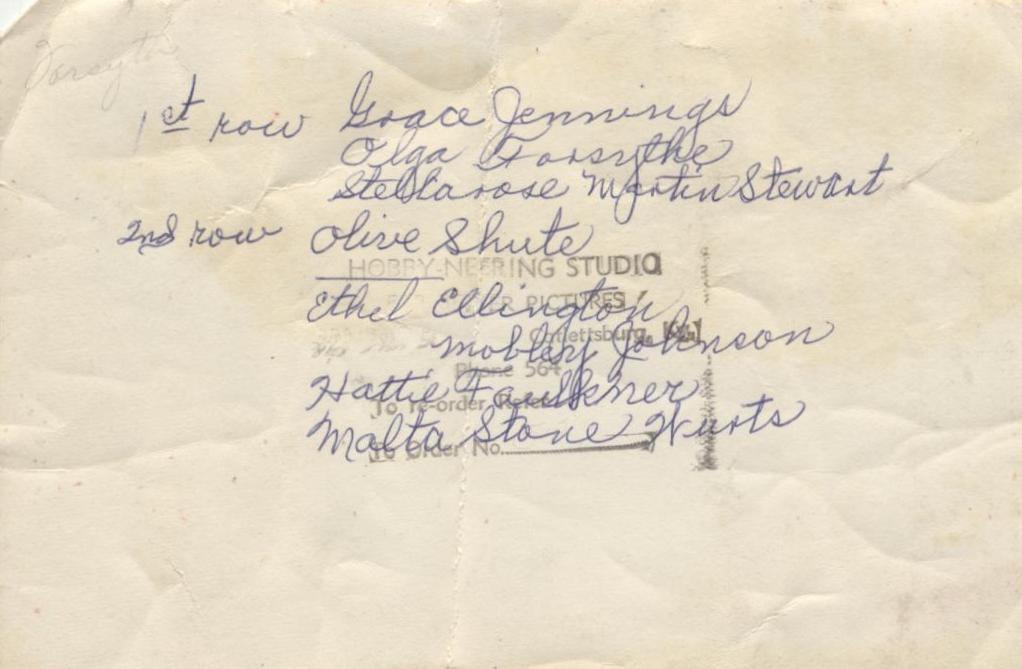 Forsyth
1st row Grace Jennings
Olga Forsythe
Stellarose Martin Stewart
2nd row Olive Shute
HOBBY-NEERING STUDIO
Ethel Ellington
PICTURES
Catlettsburg, Ky.
Mobley Johnson
Phone 564
Hattie Faulkner
To re-order Refer
Malta Stone Wurts
To Order No.